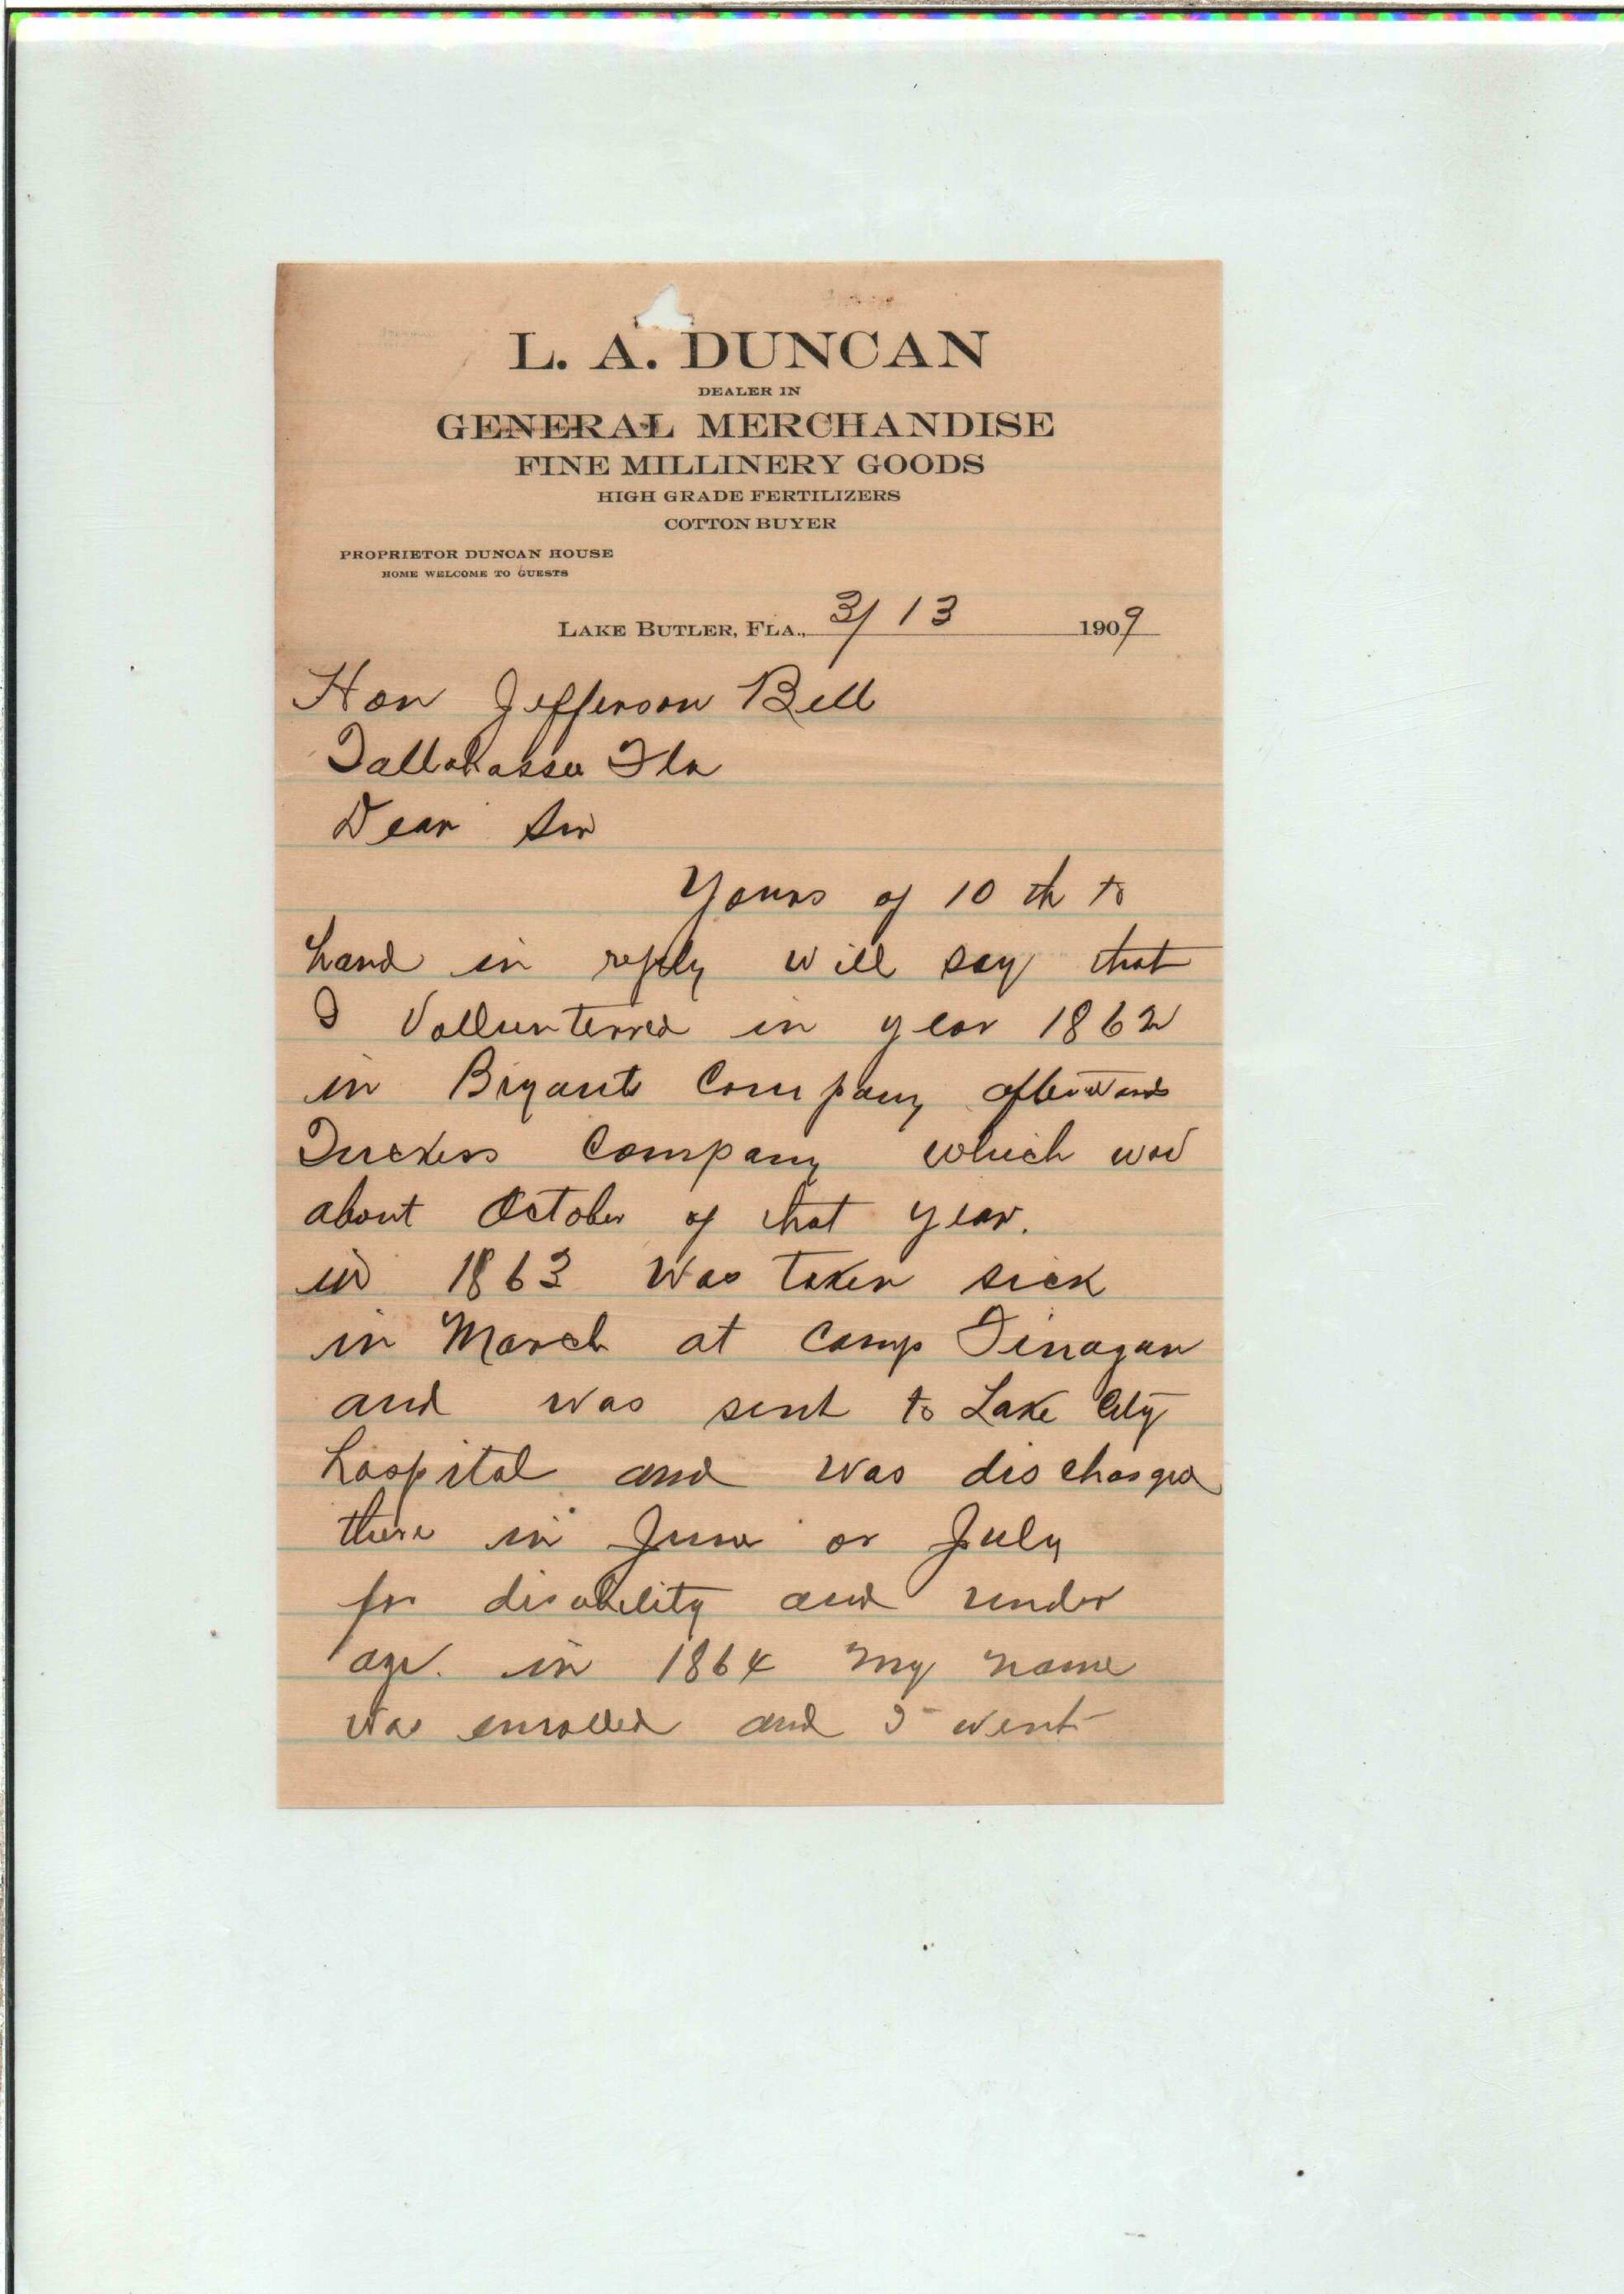 L. A. DUNCAN
DEALER IN
GENERAL MERCHANDISE
FINE MILLINERY GOODS
HIGH GRADE FERTILIZERS
COTTON BUYER
PROPRIETOR DUNCAN HOUSE
HOME WELCOME TO GUESTS
LAKE BUTLER, FLA., 3/13 1909
Hon Jefferson Bell
Tallahassee Fla
Dear Sir
Yours of 10 th to
hand in reply will say that
I Vollunterred in year 1862
in Bryants Company afterwards
Tuckers Company which was
about October of that year.
in 1863 Was taken sick
in March at Camp Finagan
and was sent to Lake City
hospital and was discharged
there in June or July
for disability and under
age. in 1864 my name
was enrolled and I went